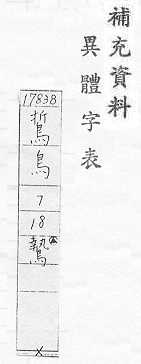 補充資料
異體字表
1783B
鳥
7
18
鷙
X